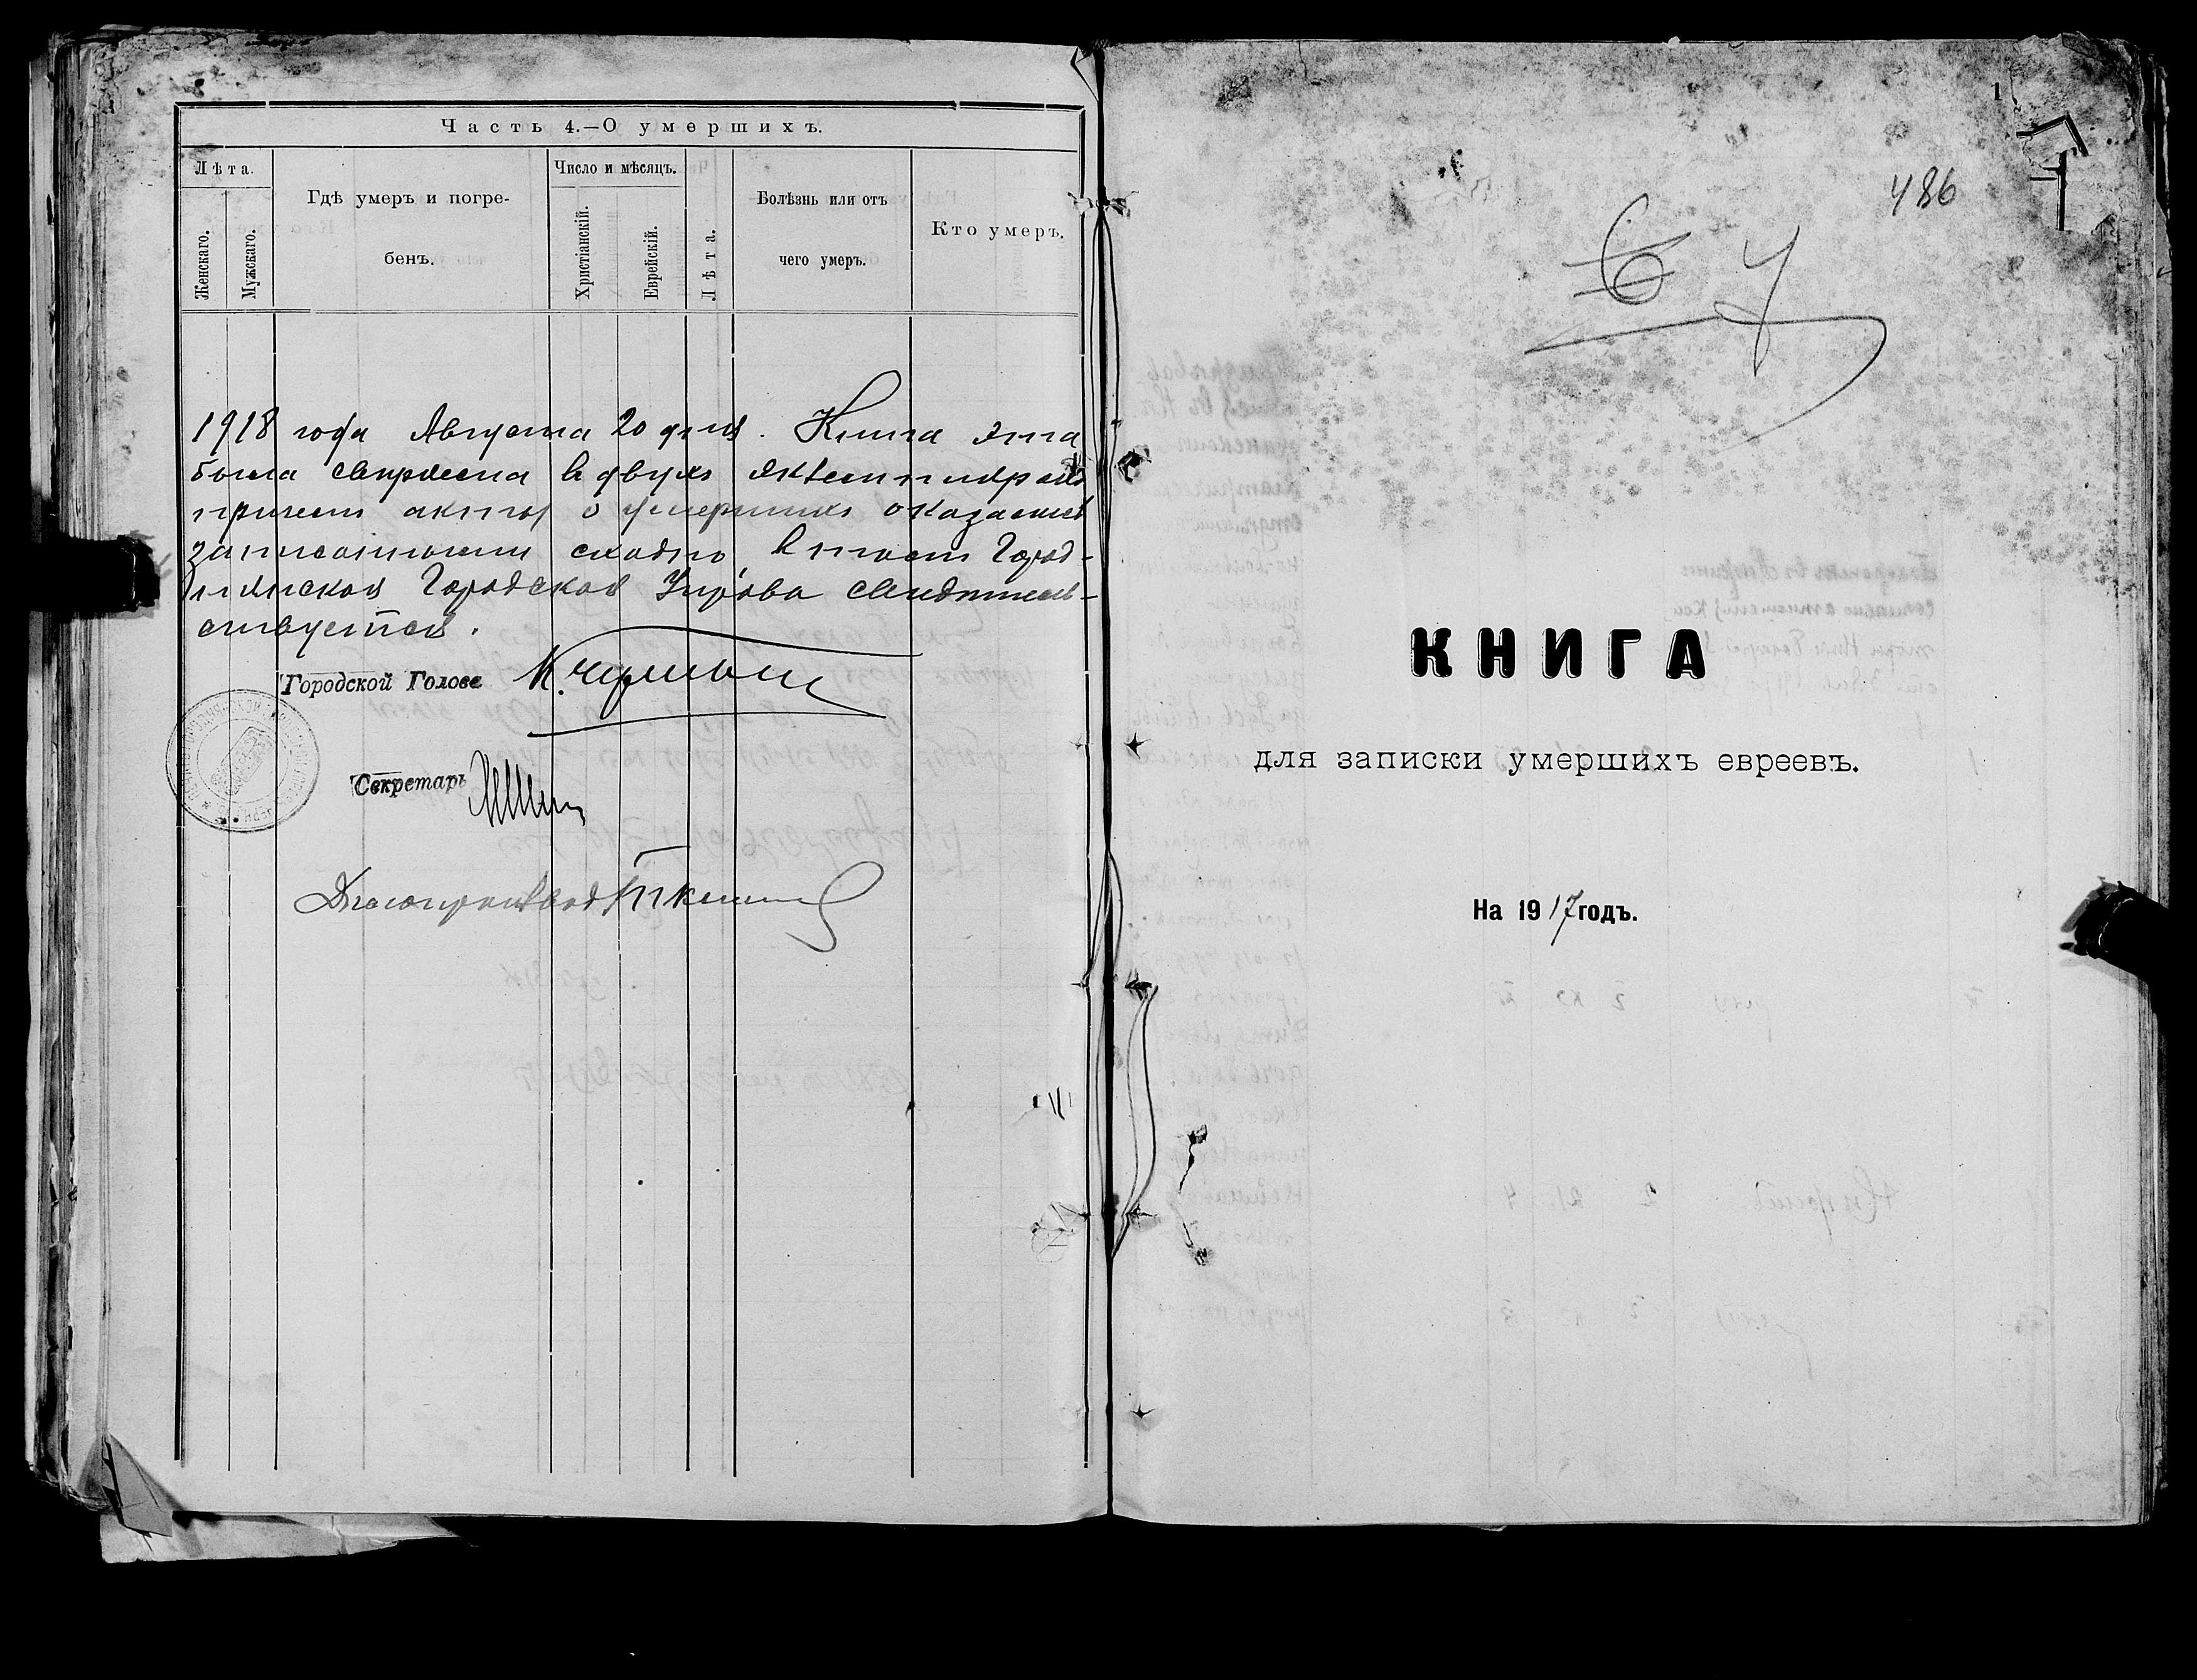 Часть 4.—О умершихъ.
Лѣта.
Женскаго.
Мужскаго.
Гдѣ умеръ и погре-
бенъ.
Число и мѣсяцъ.
Христіанскій.
Еврейскій.
Лѣта.
Болѣзнь или отъ
чего умеръ.
Кто умеръ.
1918 года Августа 20 дня. Книга эта
была сверена в двух экземплярах
причем акты о умерших оказались
записанными сходно, в чем Город-
нянская Городская Управа свидетель-
ствуетъ.
Городской Голова
Секретарь
1
486
6 У
КНИГА
для записки умершихъ евреевъ.
На 1917 годъ.